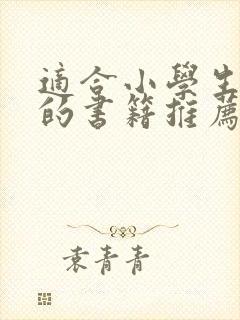 適合小學生
的書籍推薦
袁青青